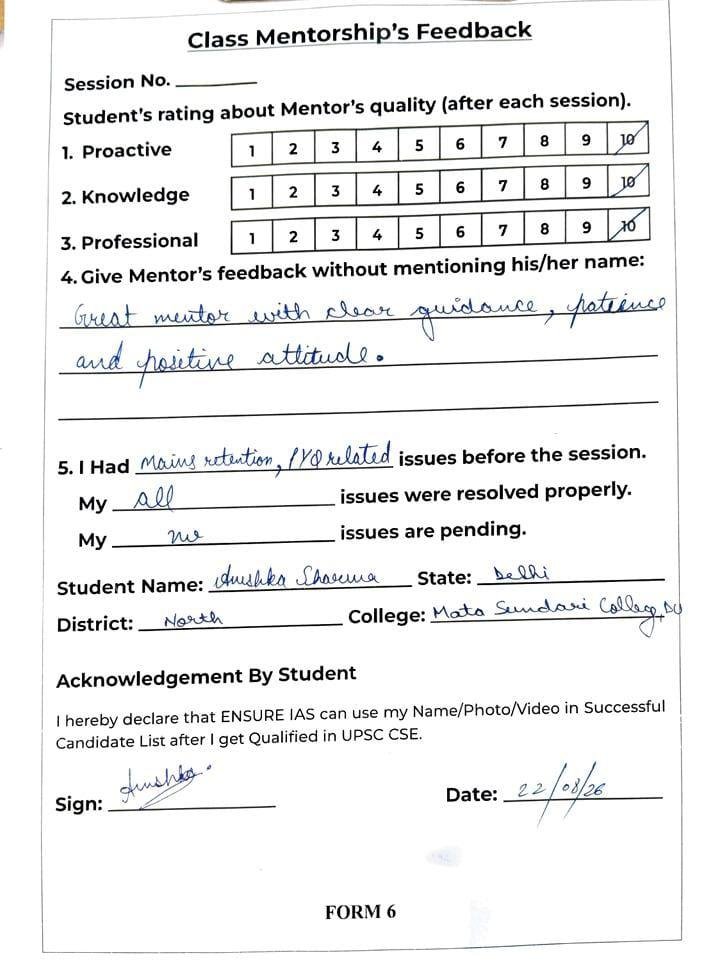 Class Mentorship's Feedback
Session No.
Student's rating about Mentor's quality (after each session).
1. Proactive 1 2 3 4 5 6 7 8 9 10
2. Knowledge 1 2 3 4 5 6 7 8 9 10
3. Professional 1 2 3 4 5 6 7 8 9 10
4. Give Mentor's feedback without mentioning his/her name:
Great mentor with clear guidance, patience
and positive attitude.
5. I Had Mains retention, PYQ related issues before the session.
My all issues were resolved properly.
My no issues are pending.
Student Name: Anushka Sharma State: Delhi
District: North College: Mata Sundari College, DU
Acknowledgement By Student
I hereby declare that ENSURE IAS can use my Name/Photo/Video in Successful
Candidate List after I get Qualified in UPSC CSE.
Sign: Anushka. Date: 22/08/26
FORM 6